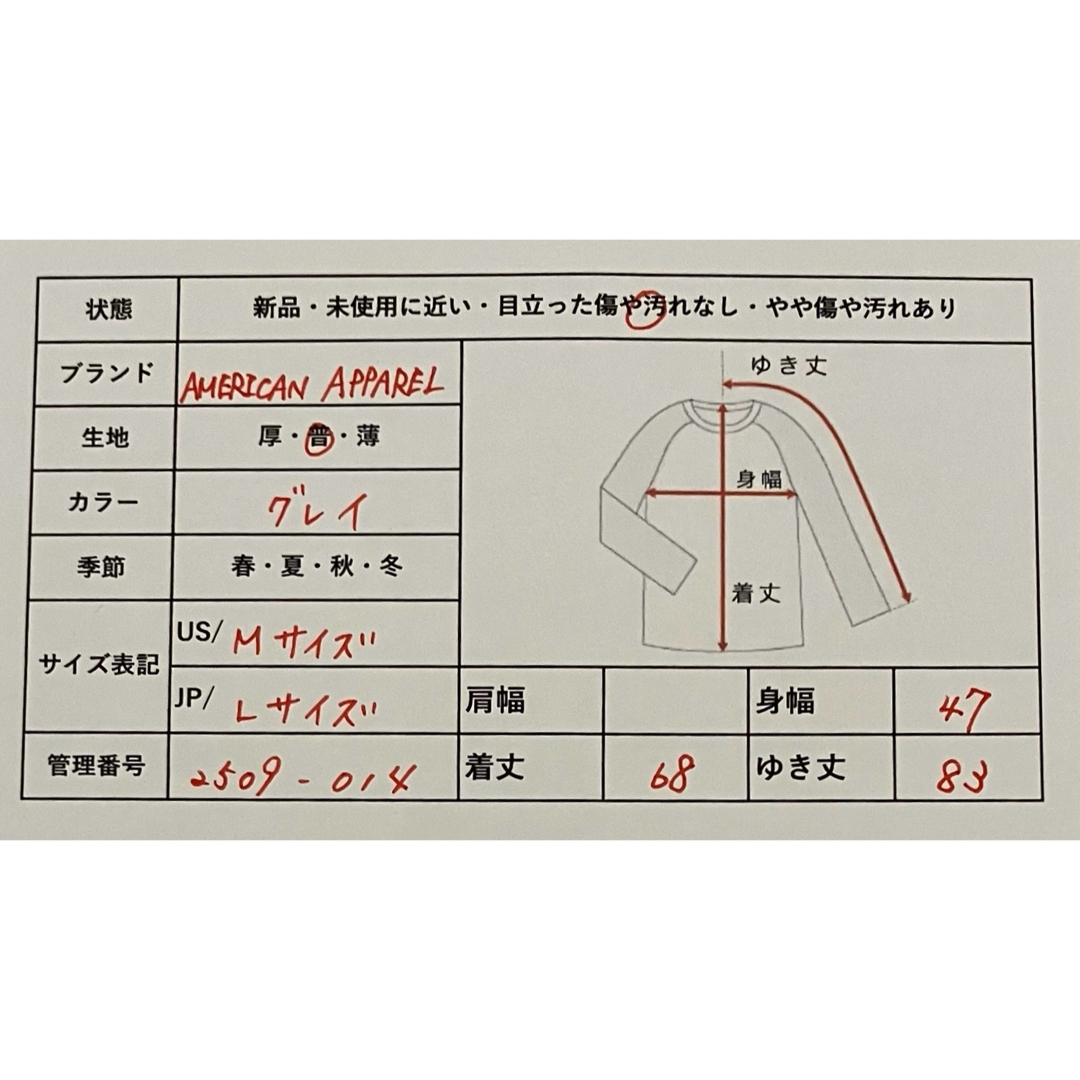 状態 新品・未使用に近い・目立った傷や汚れなし・やや傷や汚れあり
ブランド AMERICAN APPAREL
生地 厚・普・薄
カラー グレイ
季節 春・夏・秋・冬
サイズ表記
US/ Mサイズ
JP/ Lサイズ
管理番号 2509-014
ゆき丈
身幅
着丈
肩幅 身幅 47
着丈 68 ゆき丈 83